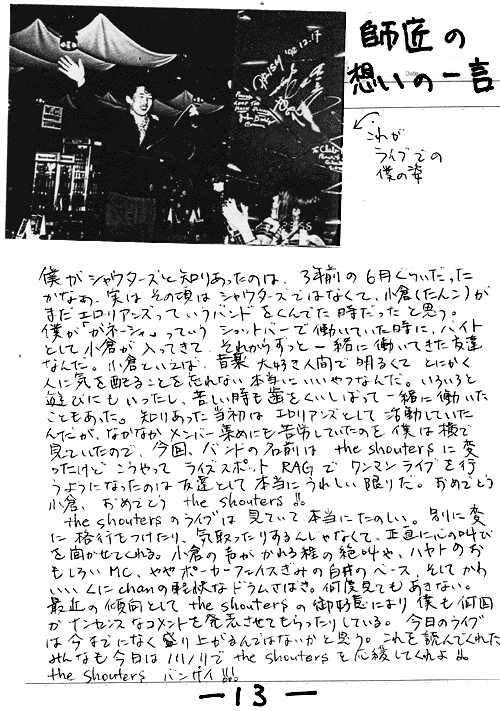 師匠の
想いの一言
DAISY '92.12.17
これが
ライブでの
僕の姿
僕がシャウターズと知りあったのは、3年前の6月ぐらいだった
かなぁ、実はその頃はシャウターズではなくて、小倉(たんこ)が
まだエロリアンズっていうバンドをくんでた時だったと思う。
僕が「ガネーシャ」っていうショットバーで働いていた時に、バイト
として小倉が入ってきて、それからずっと一緒に働いてきた友達
なんだ。小倉といえば、音楽大好き人間で明るくてとにかく
人に気を配ることを忘れない本当にいいやつなんだ。いろいろと
遊びにもいったし、苦しい時も歯をくいしばって一緒に働いた
こともあった。知りあった当初はエロリアンズとして活動していた
んだが、なかなかメンバー集めにも苦労していたのを僕は横で
見ていたので、今回、バンドの名前は the shouters に変
ったけどこうやってライブスポット RAG でワンマンライブを行
うようになったのは友達として本当にうれしい限りだ。おめでとう
小倉、おめでとう the shouters!!
the shouters のライブは見ていて本当にたのしい。別に変
に格好をつけたり、気取ったりするんじゃなくて、正直に心の叫び
を聞かせてくれる。小倉の声がかれる程の絶叫や、ハヤトのお
もしろいMC、ややポーカーフェイスぎみの白井のベース、そしてかわ
いいくにchanの軽快なドラムさばき。何度見てもあきない。
最近の傾向として the shouters の御好意により僕も何回
かナンセンスなコメントを発言させてもらったりしている。今日のライブ
は今までになく盛り上がるんではないかと思う。これを読んでくれた
みんなも今日はノリノリで the shouters を応援してくれよ!!
the shouters バンザイ!!!
—13—